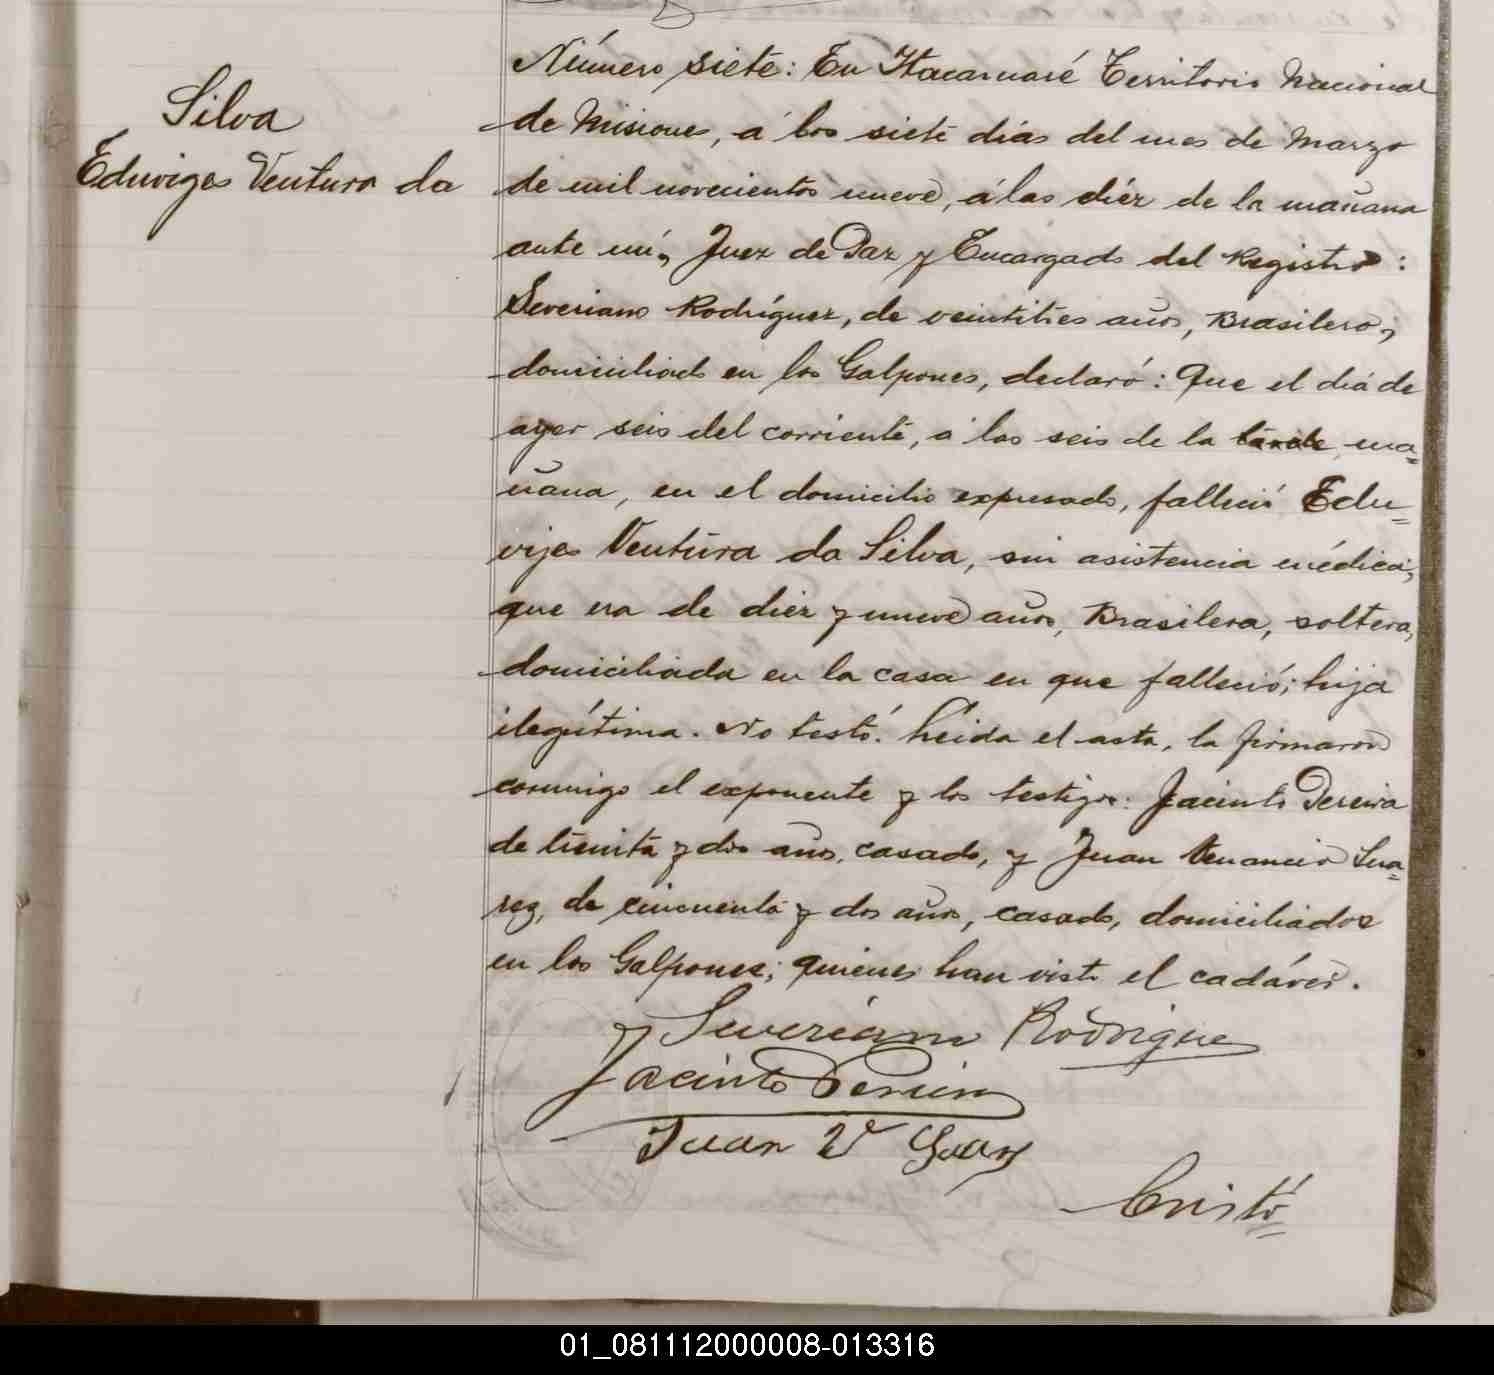 Silva
Eduviges Ventura da
Número siete: En Itacaruaré Territorio Nacional
de Misiones, á los siete dias del mes de Marzo
de mil novecientos nueve, á las diéz de la mañana
ante mí, Juez de Paz y Encargado del Registro:
Severiano Rodríguez, de veintitres años, Brasilero,
domiciliado en los Galpones, declaró: Que el dia de
ayer seis del corriente, a las seis de la tarde ma=
ñana, en el domicilio expresado, falleció Edu=
vijes Ventura da Silva, sin asistencia médica,
que era de diez y nueve años, Brasilera, soltera,
domiciliada en la casa en que falleció; hija
ilegítima. No testó. Leida el acta, la firmaron
conmigo el exponente y los testigos: Jacinto Pereira
de treinta y dos años, casado, y Juan Venancio Sua=
rez, de cincuenta y dos años, casado, domiciliados
en los Galpones; quienes han visto el cadáver.
Severiano Rodrigue
Jacinto Pereira
Juan V
01_081112000008-013316